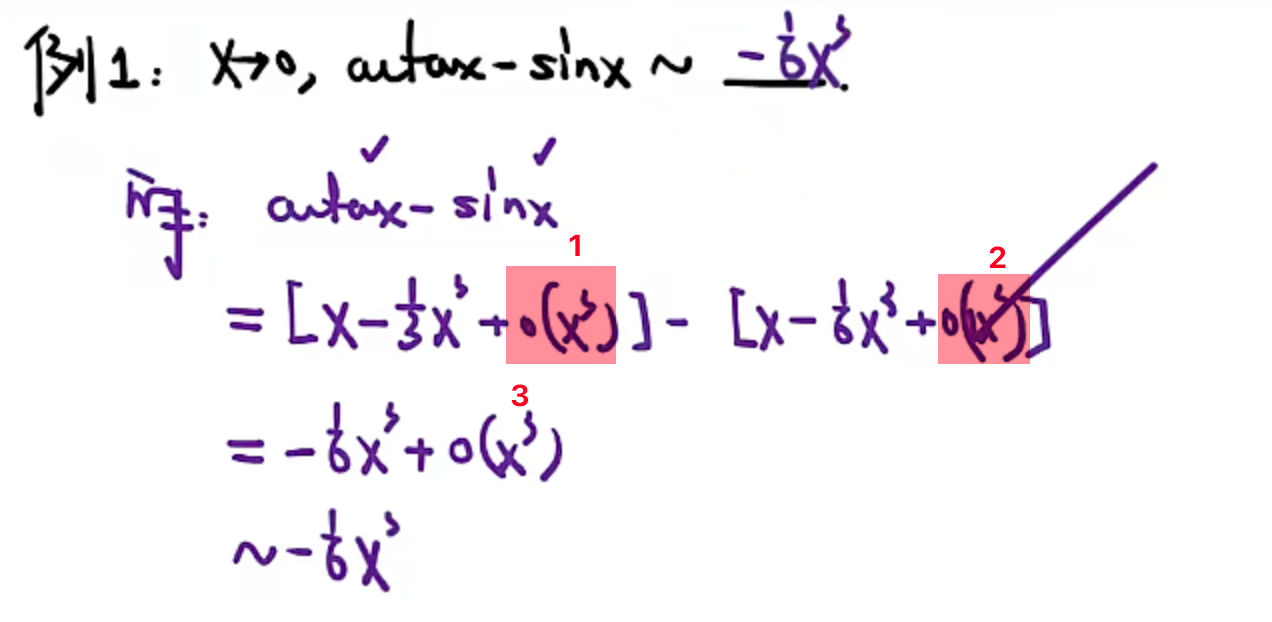 例1: x→0, arctanx-sinx ~ -1/6x³.
解: arctanx-sinx
1 2
=[x-1/3x³+o(x³)]-[x-1/6x³+o(x³)]
3
=-1/6x³+o(x³)
~-1/6x³